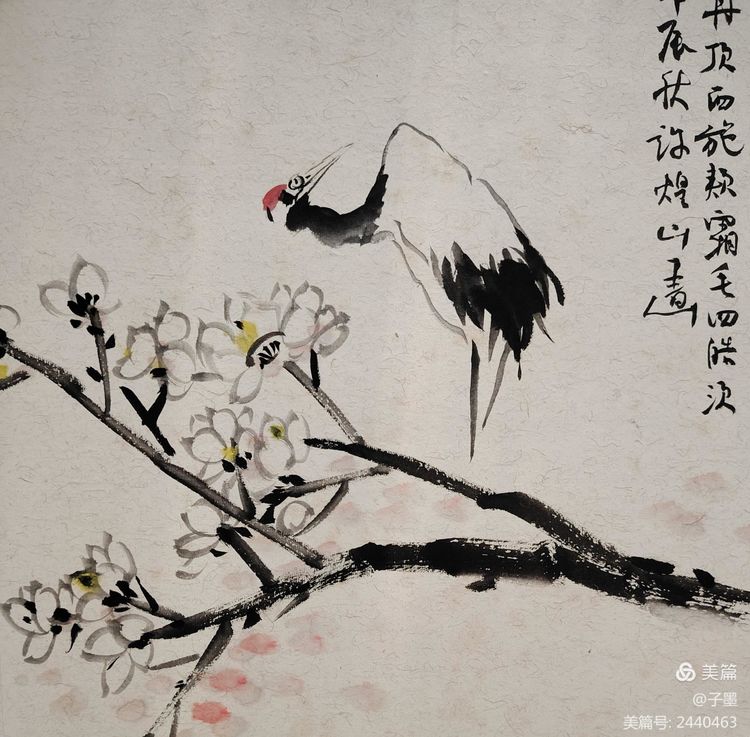 丹顶西施颊霜毛四皓须
甲辰秋 许煌山画
美篇
@子墨
美篇号: 2440463